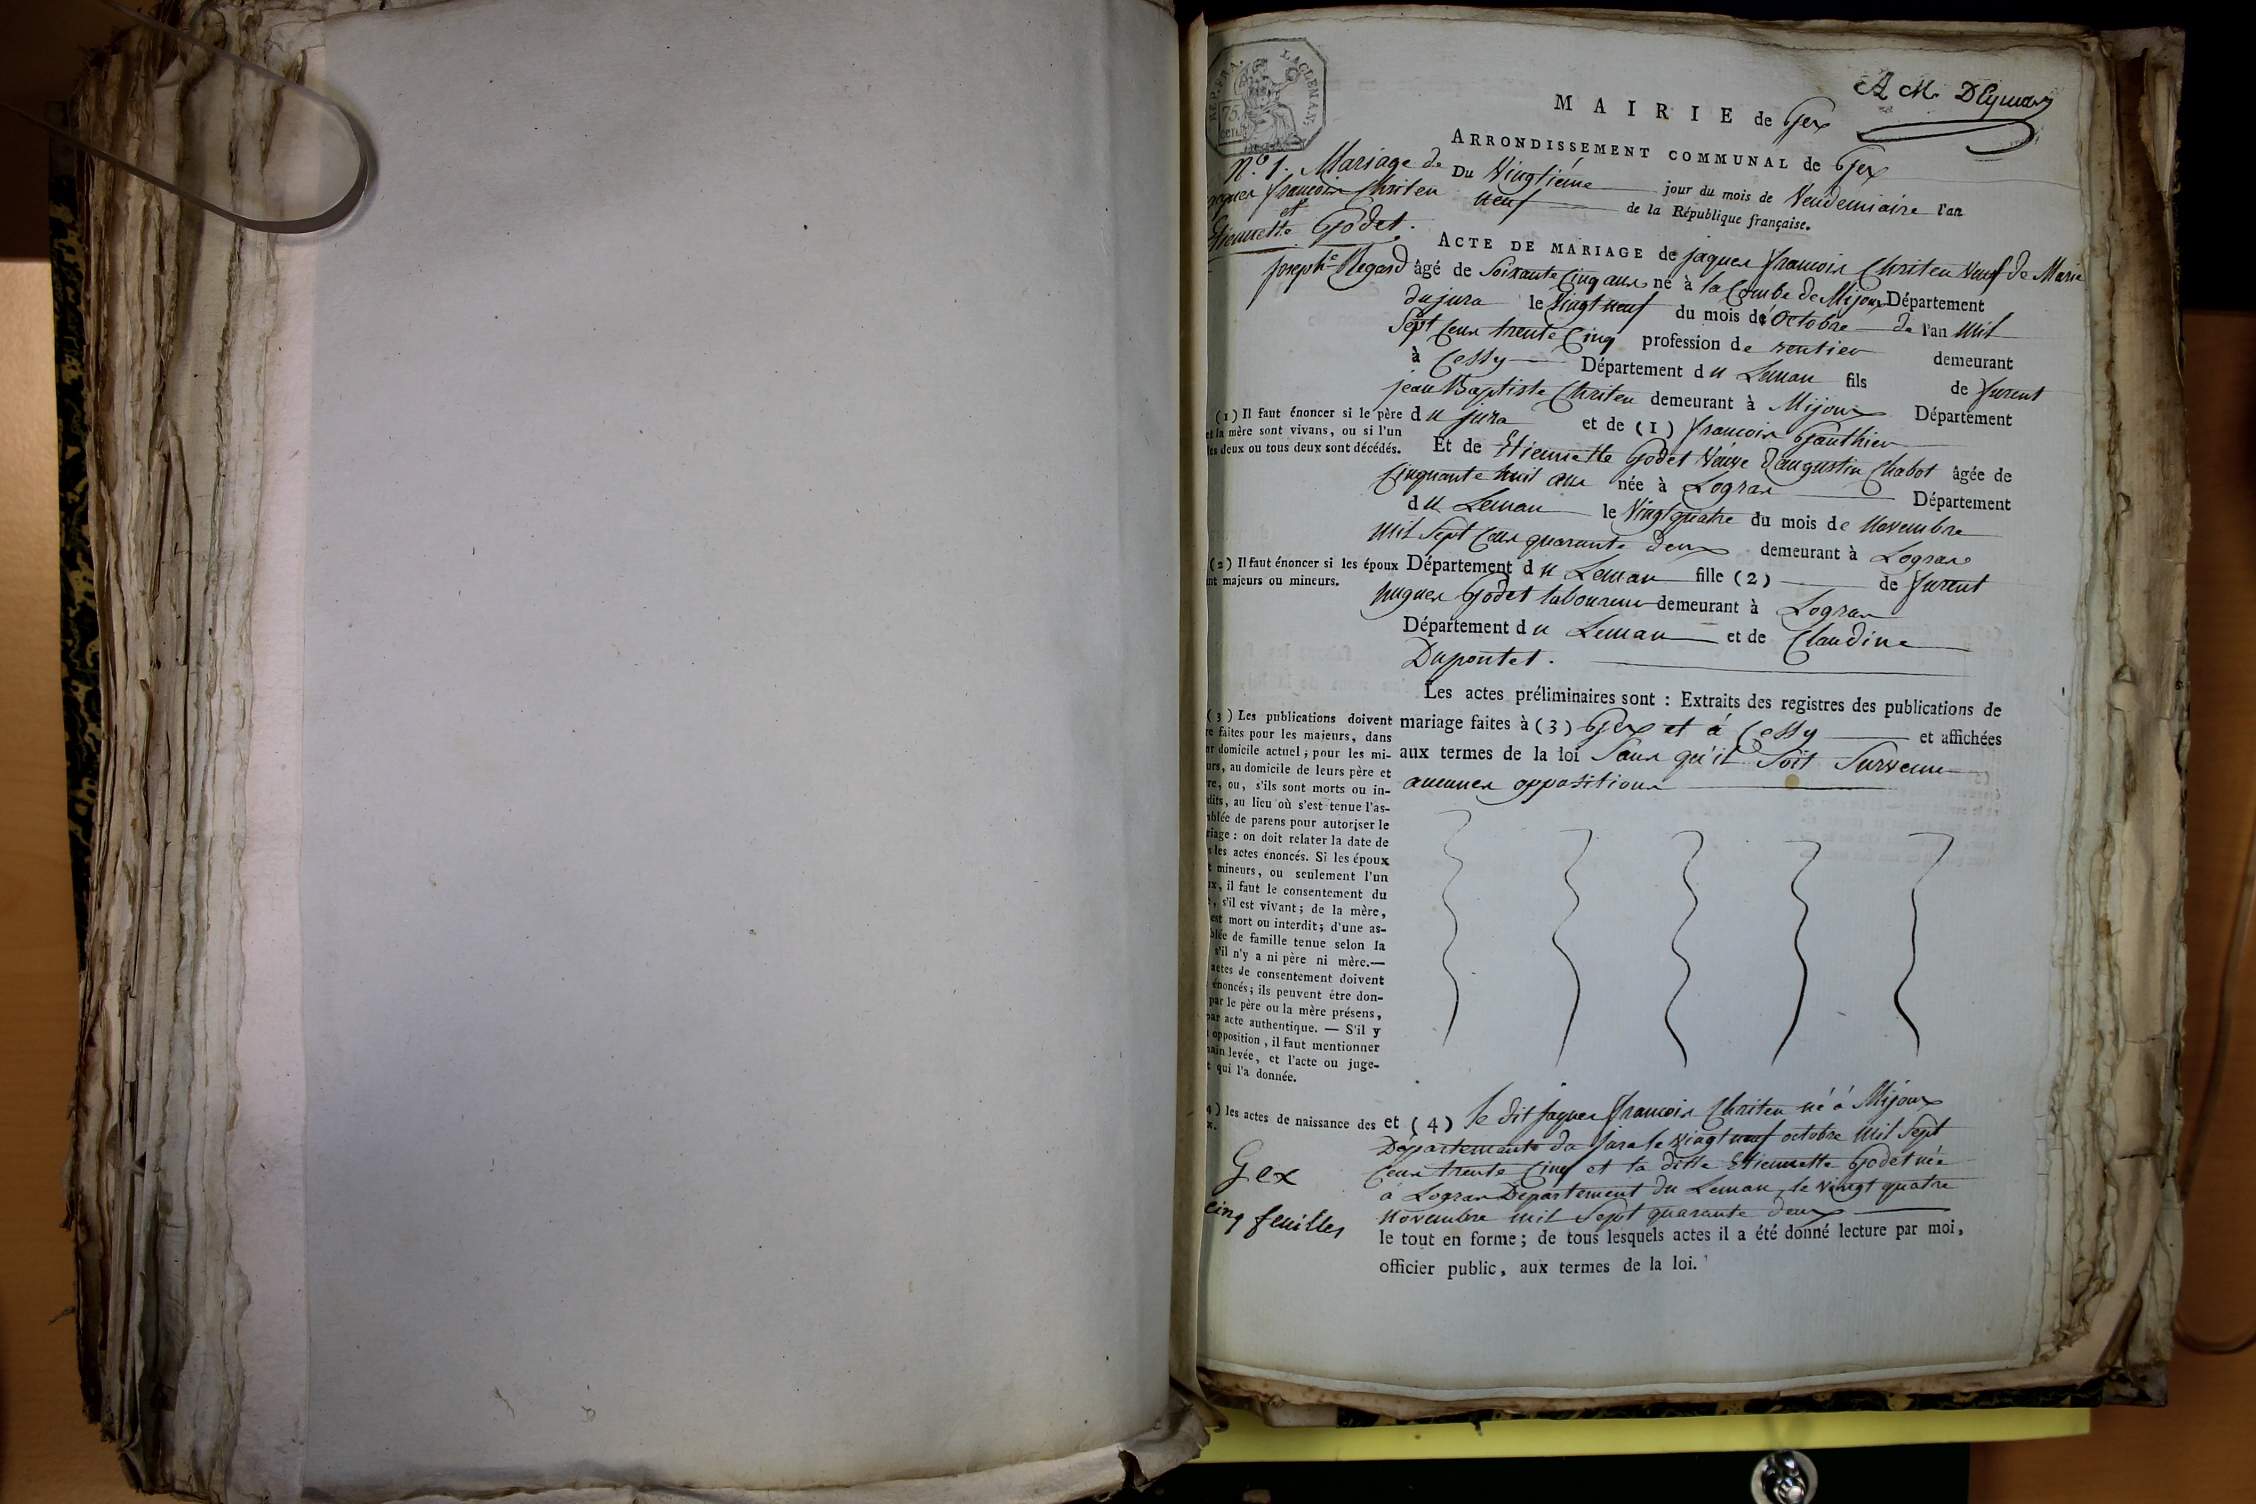 REP. FRA.
LAGLEMAN.
75.
cent.
A M. DEymar
MAIRIE de Gex
ARRONDISSEMENT COMMUNAL de Gex
N.o 1. Mariage de
jaques francois Chriten
et
Etiennette Godet.
Du Vingtiéme jour du mois de Vendemiaire l'an
neuf de la République française.
ACTE DE MARIAGE de jaques francois Chriten Veuf de Marie
josephe Regard âgé de Soixante Cinq ans né à la Combe de Mijoux Département
du jura le Vingt neuf du mois de Octobre de l'an Mil
Sept Cens trente Cinq profession de rentier demeurant
à Cessy Département du Leman fils de furent
jean Baptiste Chriten demeurant à Mijoux Département
du jura et de (1) francoise Gauthier
(1) Il faut énoncer si le père
et la mère sont vivans, ou si l'un
des deux ou tous deux sont décédés.
Et de Etiennette Godet Veuve d'augustin Chabot âgée de
Cinquante huit ans née à Logras Département
du Leman le Vingt quatre du mois de Novembre
Mil Sept Cens quarante deux demeurant à Logras
Département du Leman fille (2) de furent
hugues Godet laboureur demeurant à Logras
Département du Leman et de Claudine
Dupontet.
(2) Il faut énoncer si les époux
nt majeurs ou mineurs.
Les actes préliminaires sont : Extraits des registres des publications de
mariage faites à (3) Gex et à Cessy et affichées
aux termes de la loi Sans qu'il Soit Survenu
aucunes oppositions
(3) Les publications doivent
re faites pour les majeurs, dans
ur domicile actuel ; pour les mi-
urs, au domicile de leurs père et
re, ou, s'ils sont morts ou in-
dits, au lieu où s'est tenue l'as-
mblée de parens pour autoriser le
riage : on doit relater la date de
s les actes énoncés. Si les époux
t mineurs, ou seulement l'un
ux, il faut le consentement du
, s'il est vivant ; de la mère,
est mort ou interdit ; d'une as-
blée de famille tenue selon la
s'il n'y a ni père ni mère.—
actes de consentement doivent
énoncés ; ils peuvent être don-
par le père ou la mère présens,
par acte authentique. — S'il y
opposition, il faut mentionner
main levée, et l'acte ou juge-
t qui l'a donnée.
4) les actes de naissance des
x.
et (4) le dit jaques francois Chriten né à Mijoux
Départemente du Jura le vingt neuf octobre Mil Sept
Cens trente Cinq et la ditte Etiennette Godet née
à Logras Département du Leman, le vingt quatre
Novembre mil Sept quarante deux
le tout en forme ; de tous lesquels actes il a été donné lecture par moi,
officier public, aux termes de la loi.
Gex
cinq feuilles